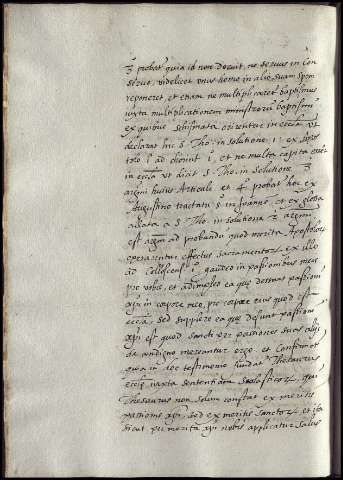 3 probat quia id non decuit, ne servus in con
videlicet unus homo in alio suam spem
reponeret et etiam ne multiplicaret baptismus
iuxta multiplicationem ministrorum baptismi
ex quibus schismata orirentur in ecclia ut
declarat hic S Tho. in solutione 1
et ne multa capita essent
in ecclia ut dicit S Tho. in solutione 3
argumenti huius Articuli et 4 probat hoc ex
Augustino tractatu 5 in Joannem et ex glosa
allata a S Tho. in solutione argumenti
est argm ad probandum quod merita Apostolorum
operarentur effectus sacramentorum ex illo
ad Collocens 1 gaudeo in passionibus meis
pro vobis, et adimpleo ea que desunt passionum
xpi in corpore meo, pro corpore eius quod est
ecclia, sed supplere ea que desunt passionum
xpi est quod sancti per passiones suas aliquid
de condigno mereantur ergo et confirmatur
quia in hoc testimonio fundatur Thesaurus
ecclie iuxta sententiam scolasticorum, qui
Thesaurus non solum constat ex meritis
passionis xpi, sed ex meritis sanctorum et ita
sicut per merita xpi nobis applicatur salus